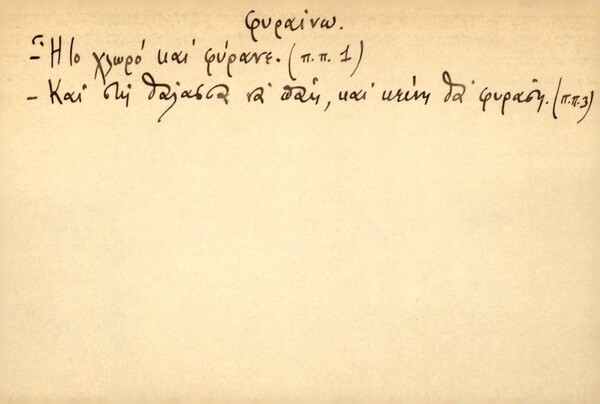 φυραίνω.
- Ἠτο χλωρό καί φύρανε. (π.π. 1)
- Καί στή θάλασσα νά πάῃ, καί κείνη θά φυράσῃ. (π.π.3)